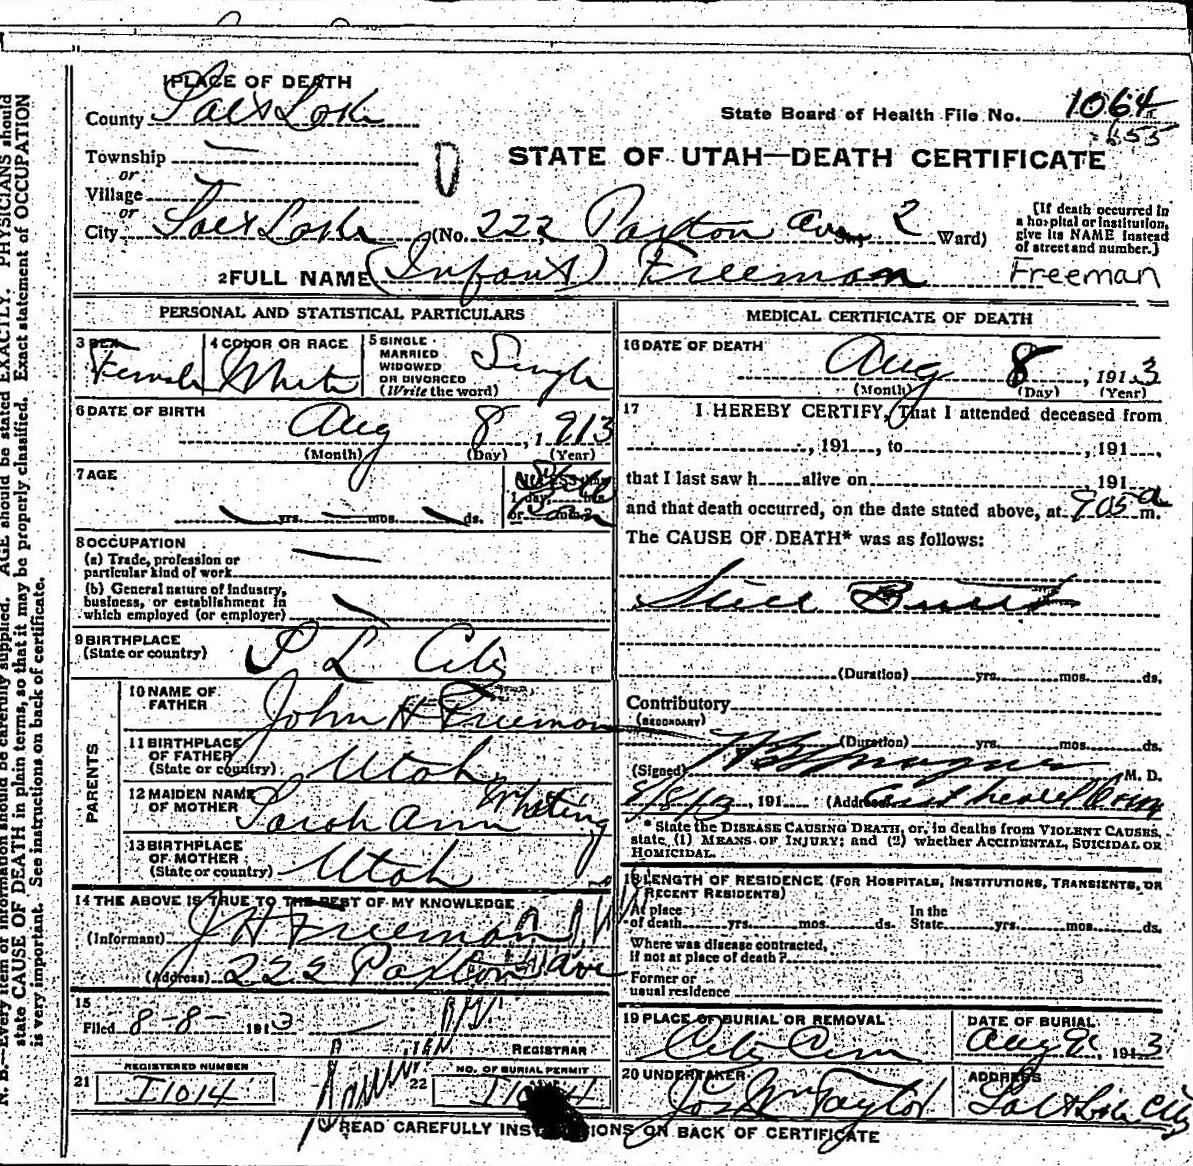 1 PLACE OF DEATH
County Salt Lake
State Board of Health File No. 1064
655
Township
or
Village
or
STATE OF UTAH—DEATH CERTIFICATE
City Salt Lake (No. 222 Paxton Ave St. 2 Ward)
[If death occurred in
a hospital or institution,
give its NAME instead
of street and number.]
2 FULL NAME (Infant) Freeman
Freeman
PERSONAL AND STATISTICAL PARTICULARS
3 SEX Female
4 COLOR OR RACE White
5 SINGLE
MARRIED
WIDOWED
OR DIVORCED
(Write the word)
Single
6 DATE OF BIRTH
Aug 8, 1913
(Month) (Day) (Year)
7 AGE
yrs. mos. ds.
8 OCCUPATION
(a) Trade, profession or
particular kind of work
(b) General nature of industry,
business, or establishment in
which employed (or employer)
9 BIRTHPLACE
(State or country)
S L City
PARENTS
10 NAME OF
FATHER
John H Freeman
11 BIRTHPLACE
OF FATHER
(State or country)
Utah
12 MAIDEN NAME
OF MOTHER
Sarah Ann Whiting
13 BIRTHPLACE
OF MOTHER
(State or country)
Utah
14 THE ABOVE IS TRUE TO THE BEST OF MY KNOWLEDGE
(Informant) J H Freeman
(Address) 222 Paxton Ave
15
Filed 8-8-1913
REGISTRAR
REGISTERED NUMBER
21 I1014
22 NO. OF BURIAL PERMIT
MEDICAL CERTIFICATE OF DEATH
16 DATE OF DEATH
Aug 8, 1913
(Month) (Day) (Year)
17 I HEREBY CERTIFY, That I attended deceased from
, 191 , to , 191 ,
that I last saw h alive on , 191
and that death occurred, on the date stated above, at 905 a m.
The CAUSE OF DEATH* was as follows:
Still Birth
(Duration) yrs. mos. ds.
Contributory
(SECONDARY)
(Duration) yrs. mos. ds.
(Signed) M. D.
8/8/13, 191 (Address)
* State the DISEASE CAUSING DEATH, or, in deaths from VIOLENT CAUSES,
state (1) MEANS OF INJURY; and (2) whether ACCIDENTAL, SUICIDAL OR
HOMICIDAL.
18 LENGTH OF RESIDENCE (FOR HOSPITALS, INSTITUTIONS, TRANSIENTS, OR
RECENT RESIDENTS)
At place
of death yrs. mos. ds.
In the
State yrs. mos. ds.
Where was disease contracted,
if not at place of death?
Former or
usual residence
19 PLACE OF BURIAL OR REMOVAL
City Cem
DATE OF BURIAL
Aug 9, 1913
20 UNDERTAKER
Jos Wm Taylor
ADDRESS
Salt Lake City
READ CAREFULLY INSTRUCTIONS ON BACK OF CERTIFICATE
N. B.—Every item of information should be carefully supplied. AGE should be stated EXACTLY. PHYSICIANS should
state CAUSE OF DEATH in plain terms, so that it may be properly classified. Exact statement of OCCUPATION
is very important. See instructions on back of certificate.